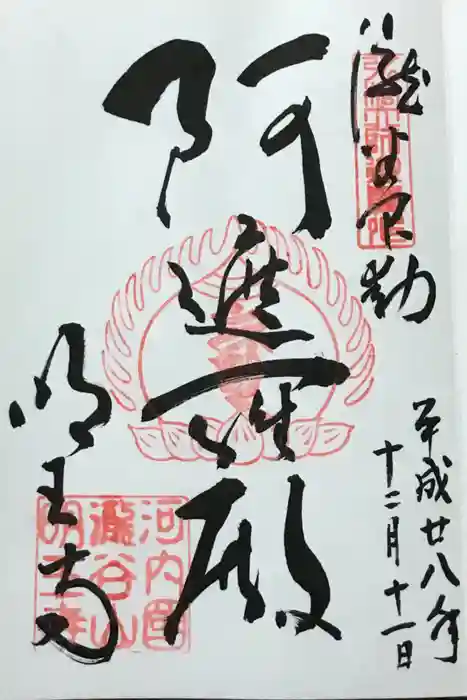 瀧谷不動
阿遮羅殿
明王寺
平成廿八年
十二月十一日
河内國
瀧谷山
明王寺